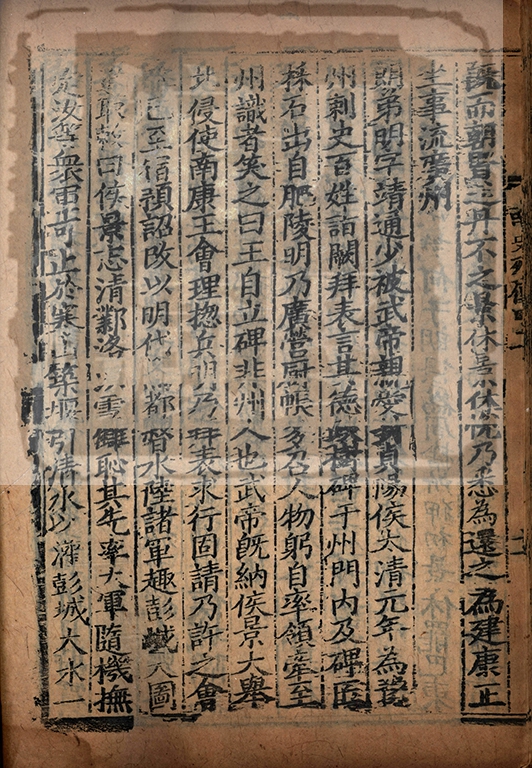 既而朝賢主丹不之景休景休悅乃悉為還之為建康正
坐事流廣州
朗弟明字靖通少被武帝親愛封貞陽侯太清元年為豫
州刺史百姓詣闕拜表言其德政樹碑于州門內及碑匠
採石出自肥陵明乃廣營厨帳多召人物躬自率領牽至
州識者笑之曰王自立碑非州人也武帝既納侯景大舉
北侵使南康王會理揔兵明乃拜表求行固請乃許之會
理已至宿預詔改以明代為都督水陸諸軍趣彭城大圖
進取敕曰侯景志清鄴洛以雪讎恥其先率大軍隨機撫
定汝等衆軍可止於寒山築堰引清水以灌彭城大水一